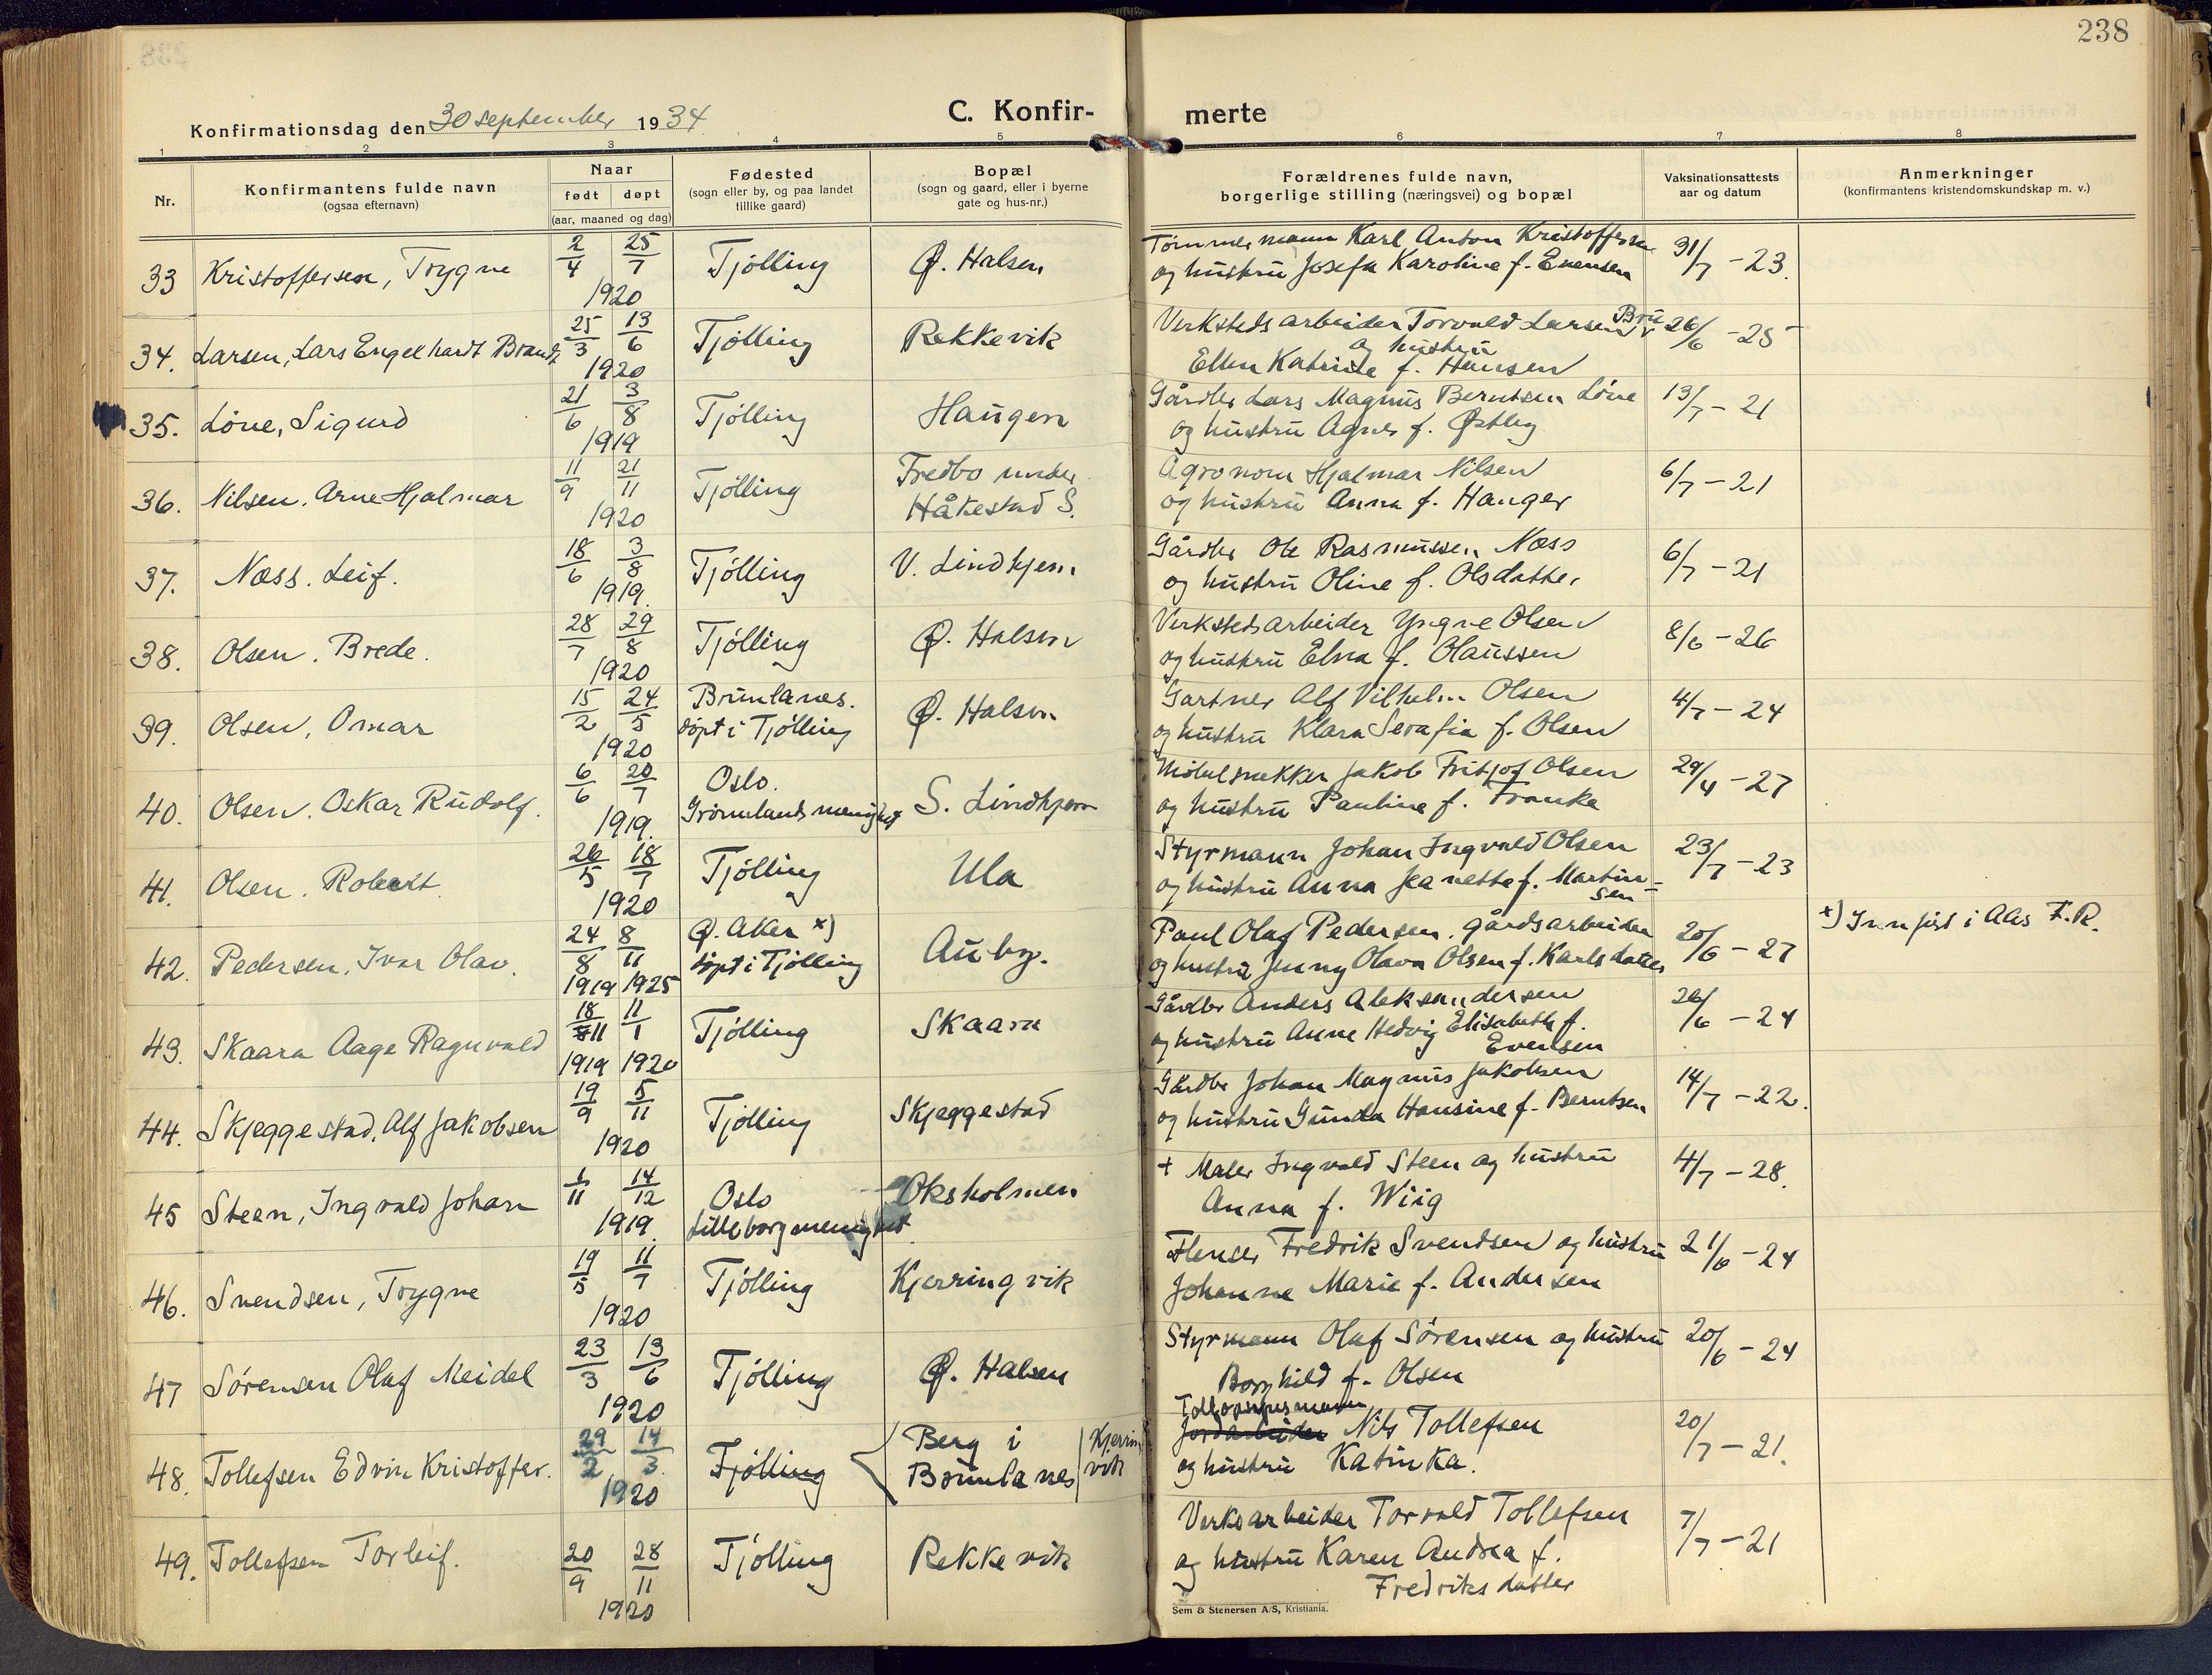 238
Konfirmationsdag den 30 september 1934.
C. Konfir-
merte
1 2 3 4 5 6 7 8
Nr.
Konfirmantens fulde navn
(ogsaa efternavn)
Naar
født døpt
(aar, maaned og dag)
Fødested
(sogn eller by, og paa landet
tillike gaard)
Bopæl
(sogn og gaard, eller i byerne
gate og hus-nr.)
Forældrenes fulde navn,
borgerlige stilling (næringsvei) og bopæl
Vaksinationsattests
aar og datum
Anmerkninger
(konfirmantens kristendomskundskap m. v.)
33 Kristoffersen, Trygve 2/4 25/7 1920 Tjølling Ø. Halsen
Tømmermann Karl Anton Kristoffersen
og hustru Josefa Karoline f. Evensen
31/7 - 23.
34. Larsen, Lars Engelhardt Brandt 25/3 13/6 1920 Tjølling Rekkevik
Verksteds arbeider Torvald Larsen Bru
og hustru
Ellen Katrine f. Hansen
26/6 - 25
35. Løve, Sigurd 21/6 3/8 1919 Tjølling Haugen
Gårdbr Lars Magnus Berntsen Løve
og hustru Agnes f. Østby
13/7 - 21
36. Nilsen. Arne Hjalmar 11/9 21/11 1920 Tjølling Fredbo under
Håkestad S.
Agronom Hjalmar Nilsen
og hustru Anna f. Hauger
6/7 - 21
37. Næss. Leif. 18/6 3/8 1919. Tjølling V. Lindhjem
Gårdbr Ole Rasmussen Næss
og hustru Oline f. Olsdatter
6/7 - 21
38. Olsen. Brede. 28/7 29/8 1920 Tjølling Ø. Halsen
Verkstedsarbeider Yngve Olsen
og hustru Elna f. Olaussen
8/6 - 26
39. Olsen, Omar 15/2 24/5 1920 Brunlanes.
døpt i Tjølling Ø. Halsen
Gartner Alf Vilhelm Olsen
og hustru Klara Serafia f. Olsen
4/7 - 24
40. Olsen. Oskar Rudolf. 6/6 20/7 1919. Oslo.
Grønnlands menighet S. Lindhjem
Møbelsnekker Jakob Fritjof Olsen
og hustru Pauline f. Franke
29/4 - 27
41. Olsen. Robert. 26/5 18/7 1920 Tjølling Ula
Styrmann Johan Ingvald Olsen
og hustru Anna Jeanette f. Martin-
sen
23/7 - 23
42. Pedersen, Ivar Olav. 24/8 1919 8/11 1925 Ø. Aker x)
døpt i Tjølling Auby.
Paul Olaf Pedersen. gårdsarbeider
og hustru Jenny Olava Olsen f. Karlsdatter
20/6 - 27
x) Innført i Aas F. R.
43. Skaara Aage Ragnvald 18/11 1919 11/1 1920 Tjølling Skaara
Gårdbr Anders Aleksandersen
og hustru Anne Hedvig Elisabeth f.
Evensen
26/6 - 24
44. Skjeggestad, Alf Jakobsen 19/9 5/11 1920 Tjølling Skjeggestad
Gårdbr Johan Magnus Jakobsen
og hustru Gunda Hansine f. Berntsen
14/7 - 22.
45 Steen, Ingvald Johan 1/11 14/12 1919. Oslo
Lilleborg menighet Oksholmen
+ Maler Ingvald Steen og hustru
Anna f. Wiig
4/7 - 28.
46. Svendsen, Trygve 19/5 11/7 1920 Tjølling Kjerringvik
Flenser Fredrik Svendsen og hustru
Johanne Marie f. Andersen
21/6 - 24
47 Sørensen Olaf Meidel 23/3 13/6 1920 Tjølling Ø. Halsen
Styrmann Olaf Sørensen og hustru
Borghild f. Olsen
20/6 - 24
48. Tollefsen Edvin Kristoffer. 29/2 14/3. 1920 Tjølling Berg i
Brunlanes Kjerring
vik
Tolloppsynsmann
Jordarbeider Nils Tollefsen
og hustru Katinka.
20/7 - 21.
49. Tollefsen Torleif. 20/9 28/11 1920 Tjølling Rekkevik
Verksarbeider Torvald Tollefsen
og hustru Karen Andrea f.
Fredriksdatter
7/7 - 21
Sem & Stenersen A/S, Kristiania.